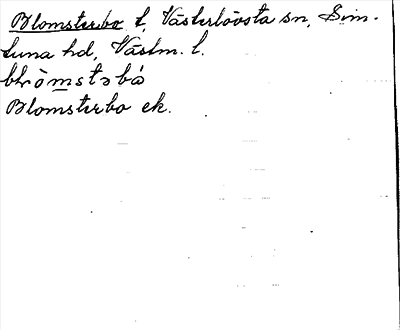 Blomsterbo t, Västerlövsta sn, Sim-
tuna hd, Västm. l.
blòmstəbó
Blomsterbo ek.